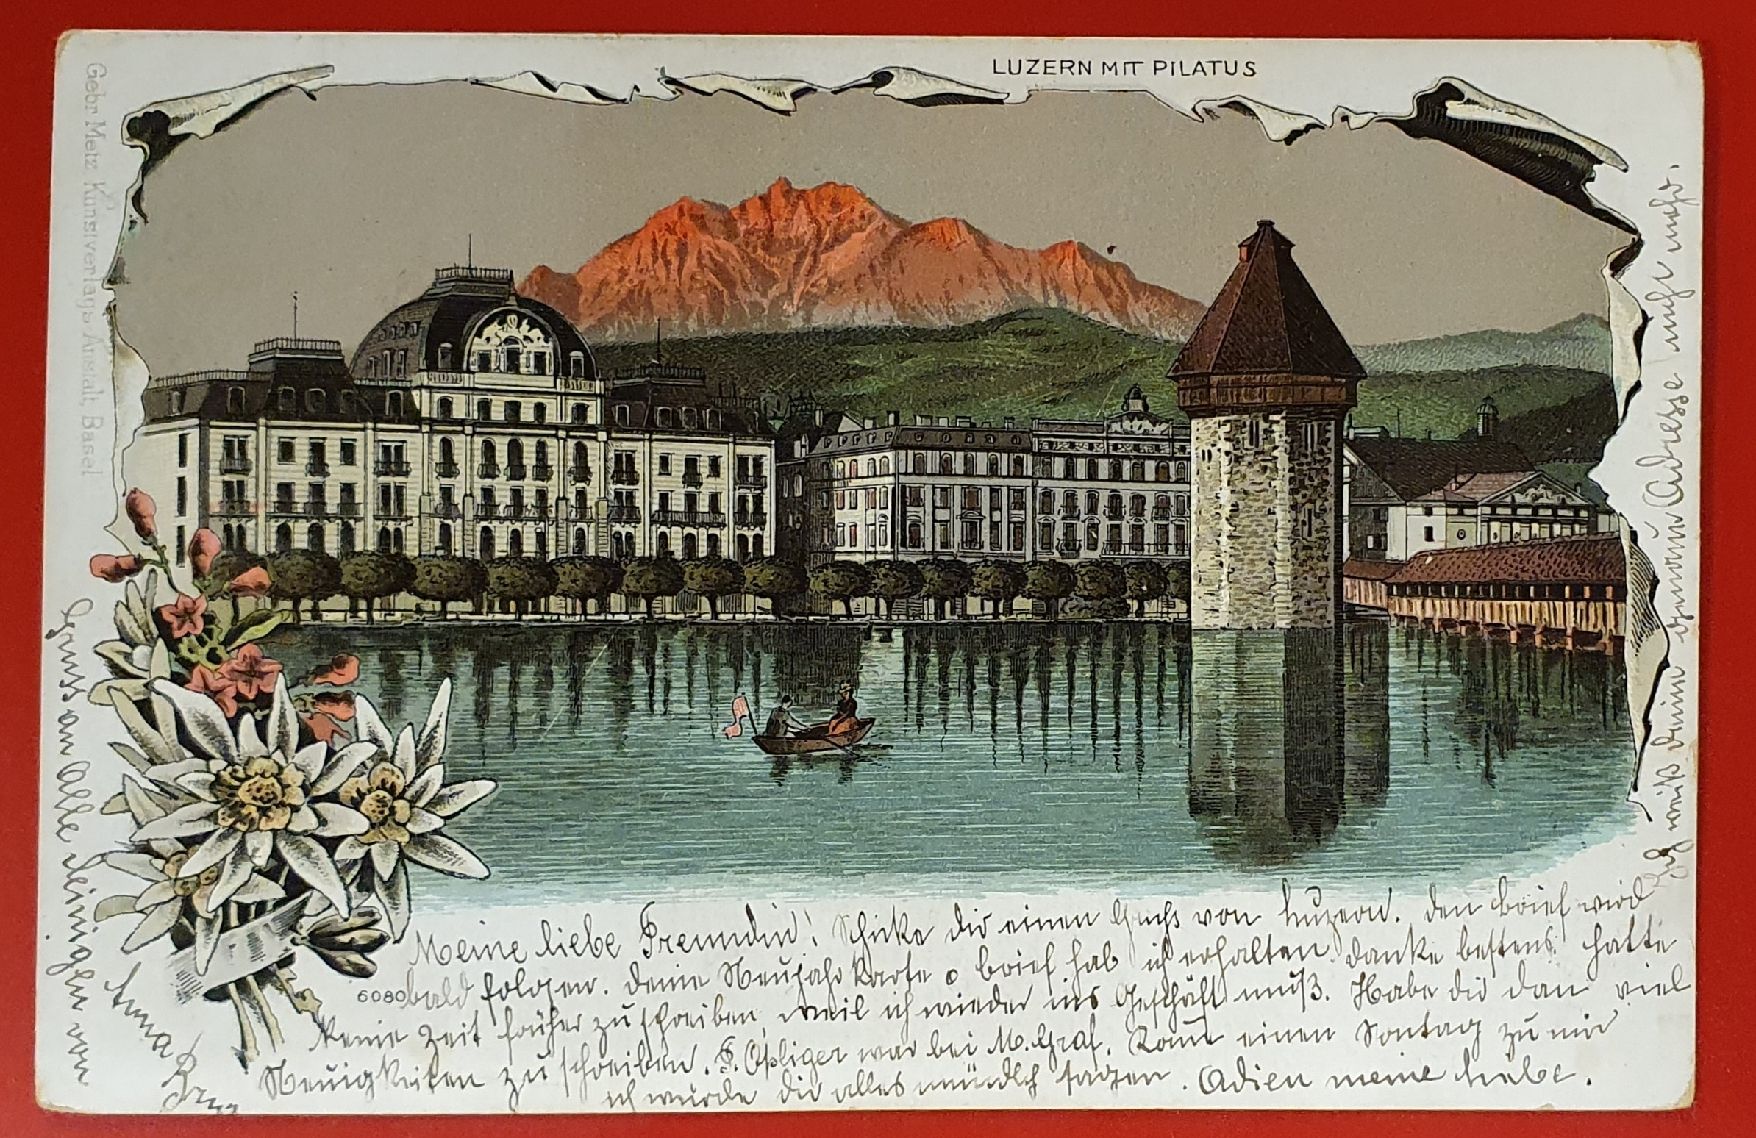 LUZERN MIT PILATUS
Gebr. Metz, Kunstverlags-Anstalt, Basel
6080
Meine liebe Freundin! Schicke dir einen Gruß von Luzern. den brief wird
bald folgen. deine Neujahrkarte o brief hab ich erhalten danke bestens hatte
keine Zeit früher zu schreiben, weil ich wieder ins Geschäft muß. Habe dir dan viel
Neuigkeiten zu schreiben. F. Opliger war bei M. Graf. Komt einen Sontag zu mir
ich würde dir alles mündlch sagen. Adien meine liebe.
Ich weiß deine genaue Adresse nicht mehr.
Gruss an Alle Deinigen von
Anna